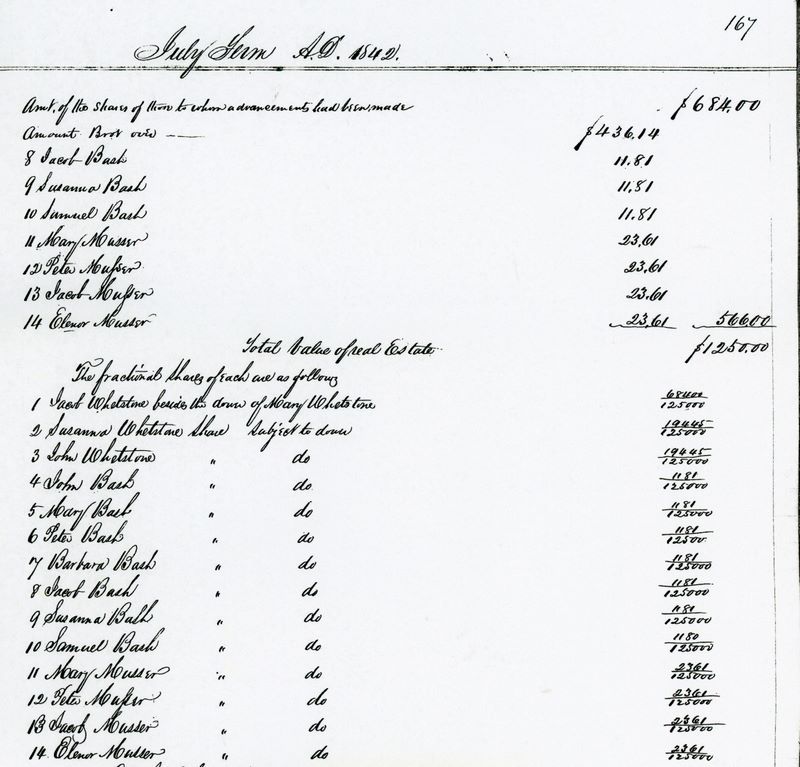 167
July Term A.D. 1842.
Amt. of the shares of those to whom advancements had been made $684.00
Amount Brot over — $436.14
8 Jacob Bash 11.81
9 Susanna Bash 11.81
10 Samuel Bash 11.81
11 Mary Musser 23.61
12 Peter Musser 23.61
13 Jacob Musser 23.61
14 Elenor Musser 23.61 566.00
Total Value of real Estate $1250.00
The fractional shares of each are as follows
1 Jacob Whetstone besides the dower of Mary Whetstone 68400/125000
2 Susanna Whetstone Share Subject to dower 19445/125000
3 John Whetstone " do 19445/125000
4 John Bash " do 1181/125000
5 Mary Bash " do 1181/125000
6 Peter Bash " do 1181/12500
7 Barbara Bash " do 1181/125000
8 Jacob Bash " do 1181/125000
9 Susanna Bash " do 1181/125000
10 Samuel Bash " do 1180/125000
11 Mary Musser " do 2361/125000
12 Peter Musser " do 2361/125000
13 Jacob Musser " do 2361/125000
14 Elenor Musser " do 2361/125000